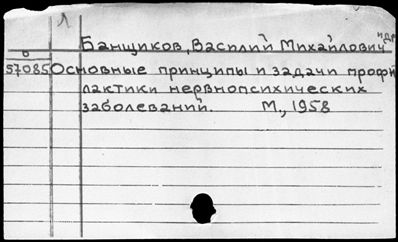 Л
Банщиков, Василий Михайлович и др
В
57085 Основные принципы и задачи профи
лактики нервнопсихических
заболеваний. М., 1958